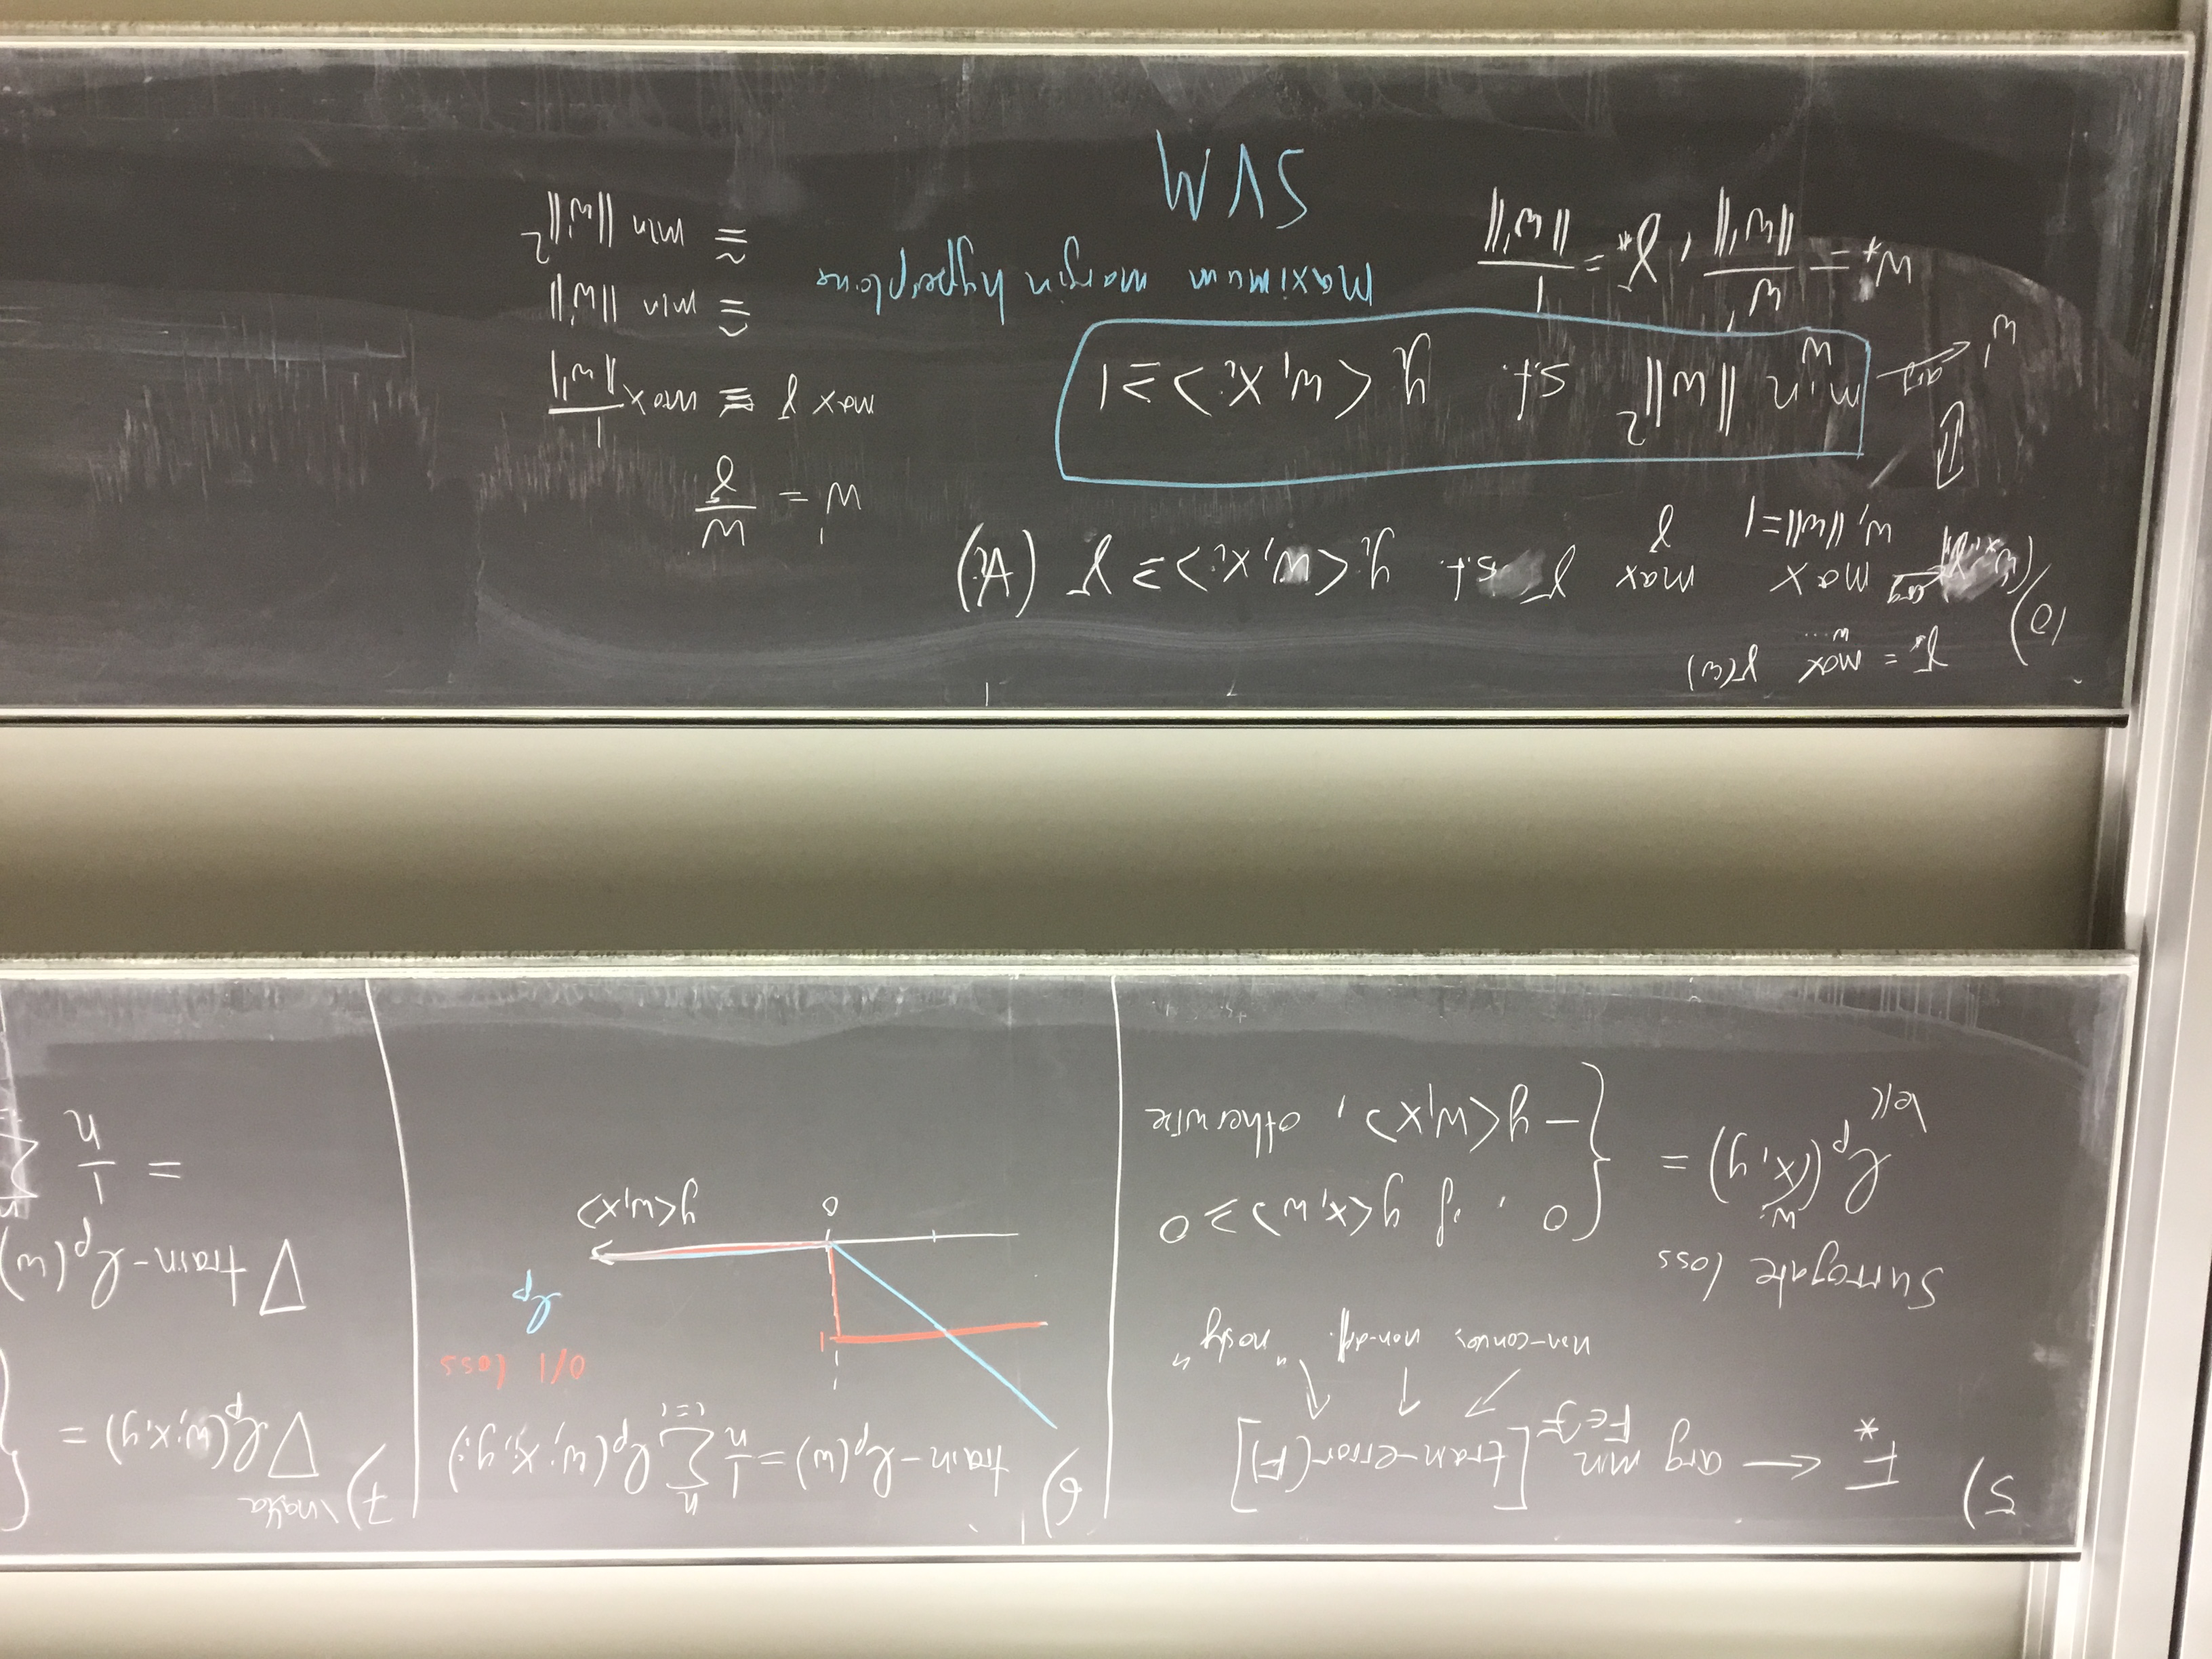 5)
F_* ← arg min_{F∈ℱ} [train-error(F)]
non-convex, non-diff. "noisy"
Surrogate loss
ℓ_p(w; x, y) = { 0, if y<x, w> ≥ 0
\ell
-y<w, x>, otherwise
6)
train-ℓ_p(w) = 1/n ∑_{i=1}^n ℓ_p(w; x_i, y_i)
0/1 loss
ℓ_p
1
0
y<w, x>
7) \nabla
∇ℓ_p(w; x, y) = {
∇ train-ℓ_p(w)
= 1/n ∑
10)
γ_* = max_{w...} γ(w)
arg max_{w, ||w||=1} max_γ γ s.t. y_i <w, x_i> ≥ γ (∀i)
⇕
w' ← arg min_w ||w||² s.t. y_i <w, x_i> ≥ 1
w_* = w'/||w'||, γ_* = 1/||w'||
maximum margin hyperplane
SVM
w' = w/γ
max γ ≅ max 1/||w'||
≙ min ||w'||
≅ min ||w'||²